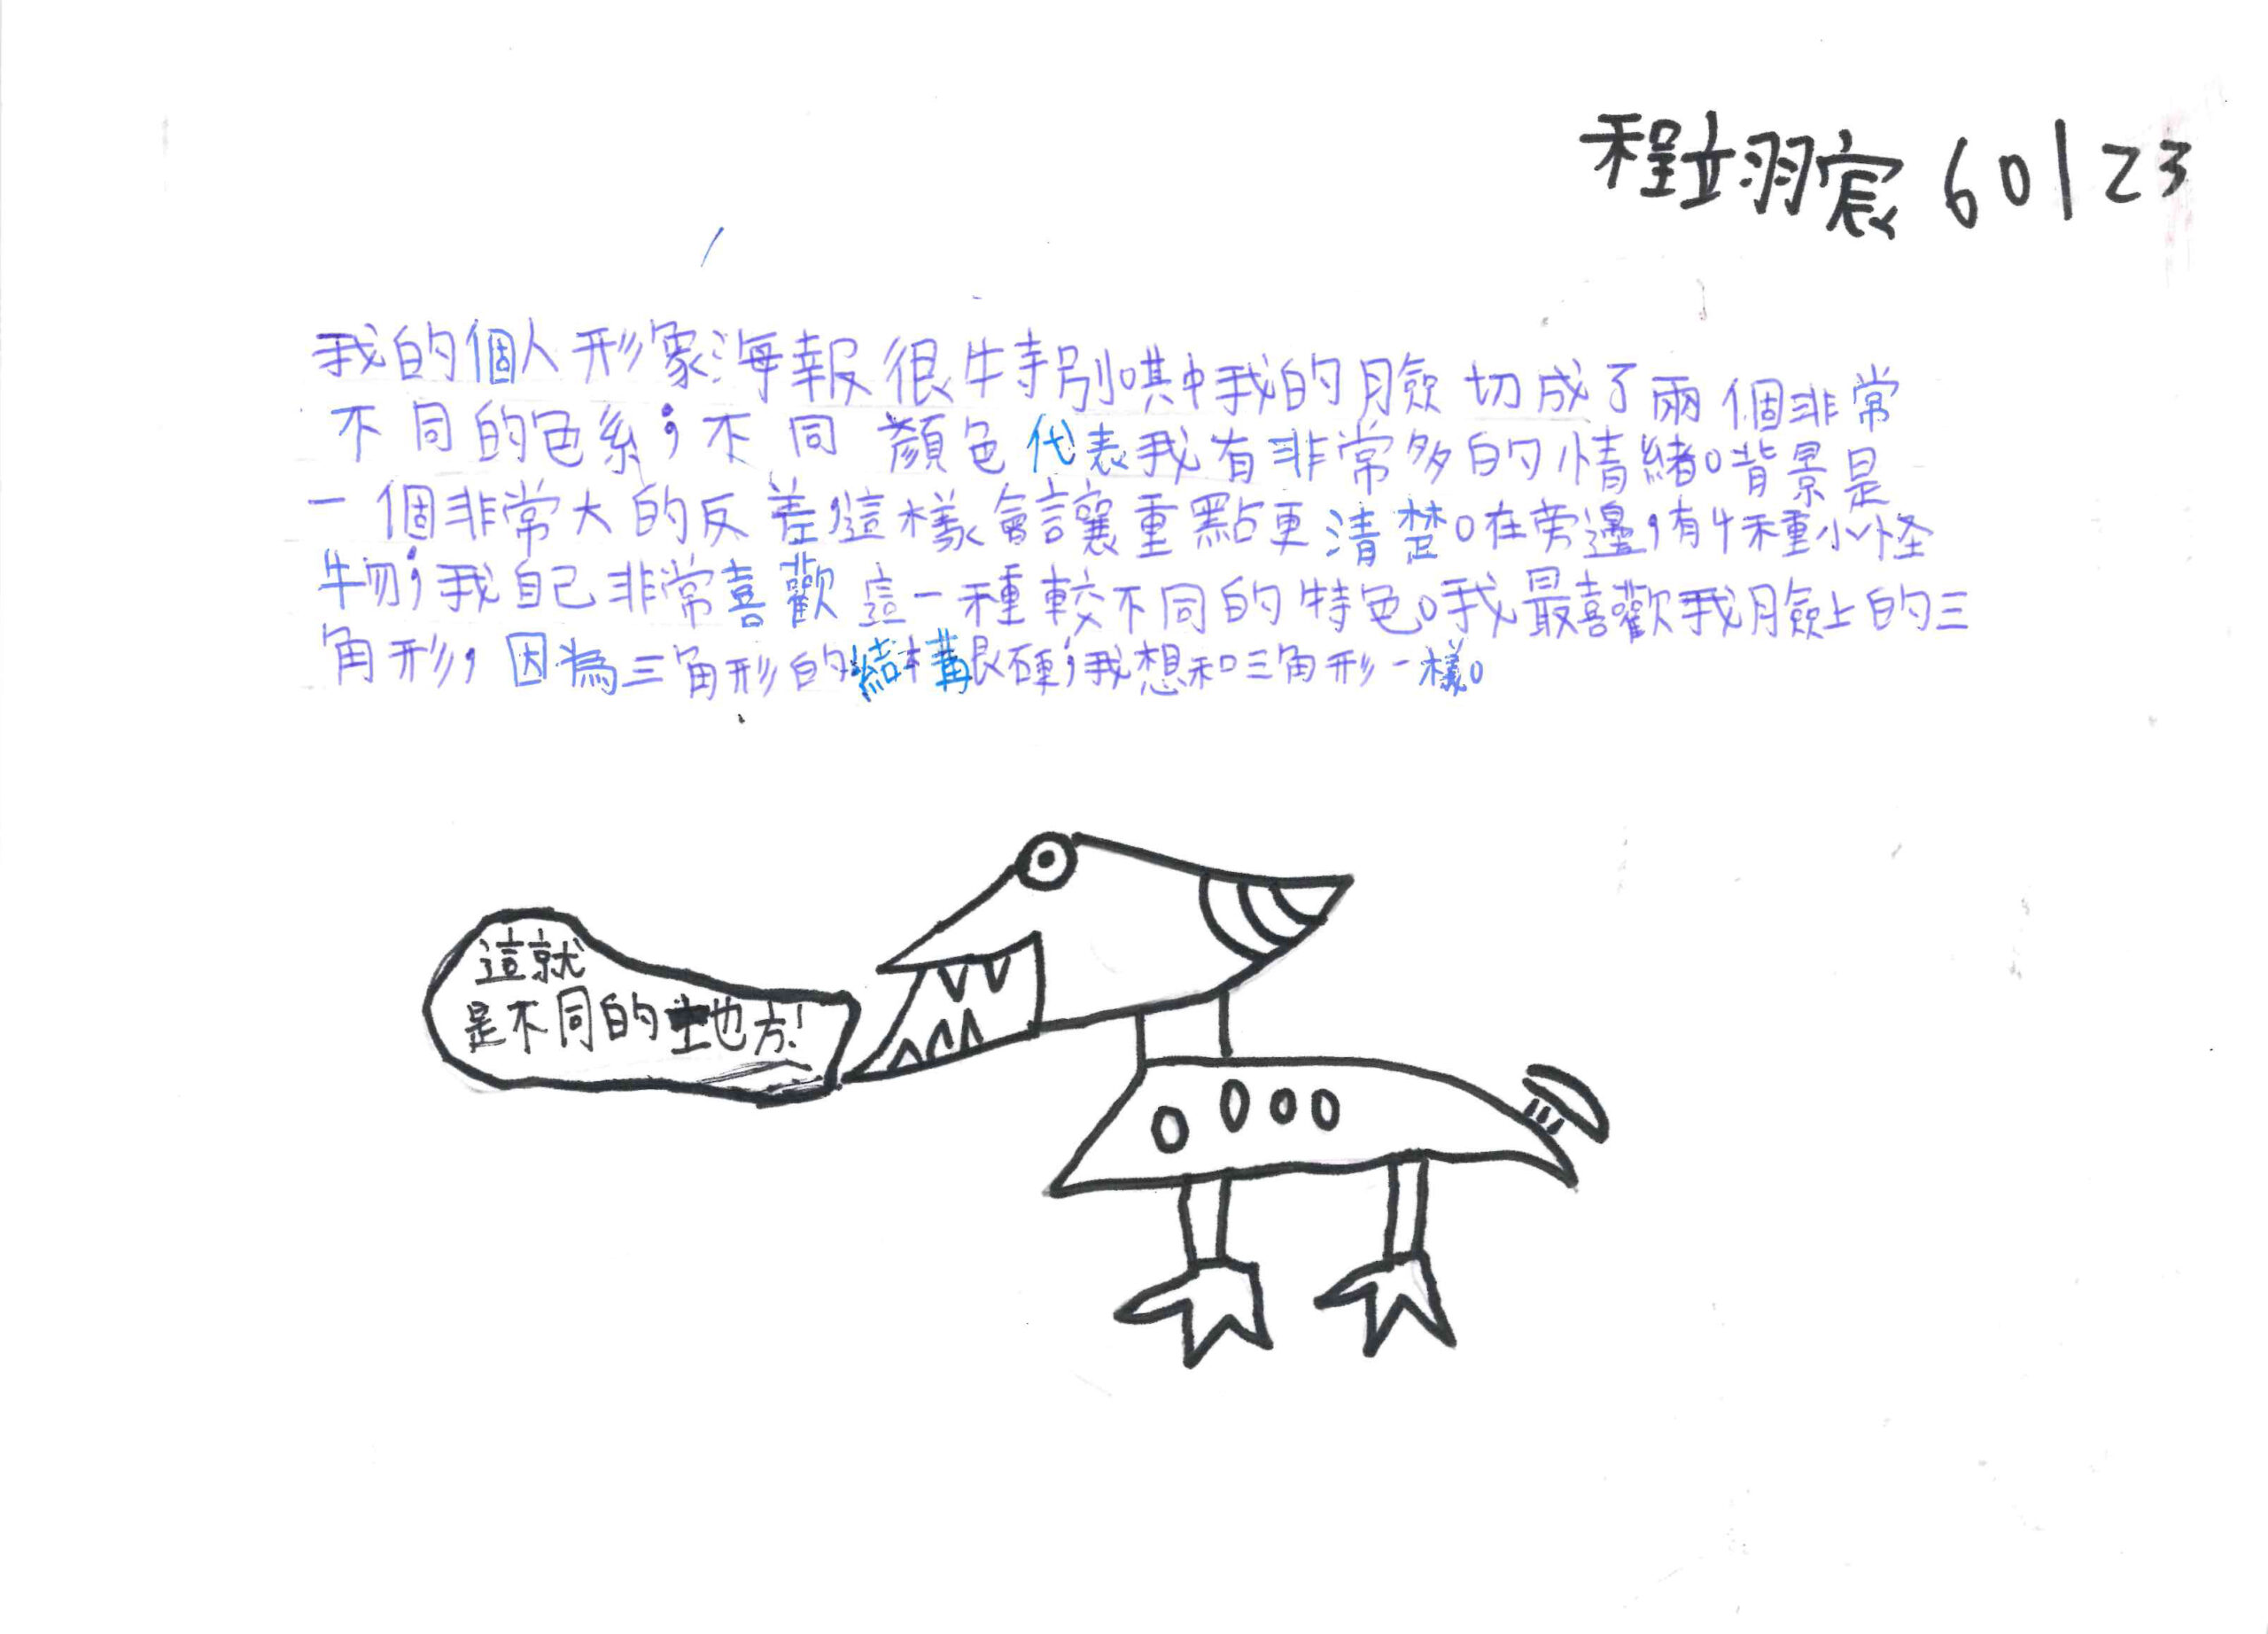 程翊宸 60123
我的個人形象海報很特別。其中我的臉切成了兩個非常
不同的色系；不同顏色代表我有非常多的情緒。背景是
一個非常大的反差，這樣會讓重點更清楚。在旁邊，有4種小怪
物；我自己非常喜歡這一種較不同的特色。我最喜歡我臉上的三
角形，因為三角形的結構很硬；我想和三角形一樣。
這就
是不同的地方！